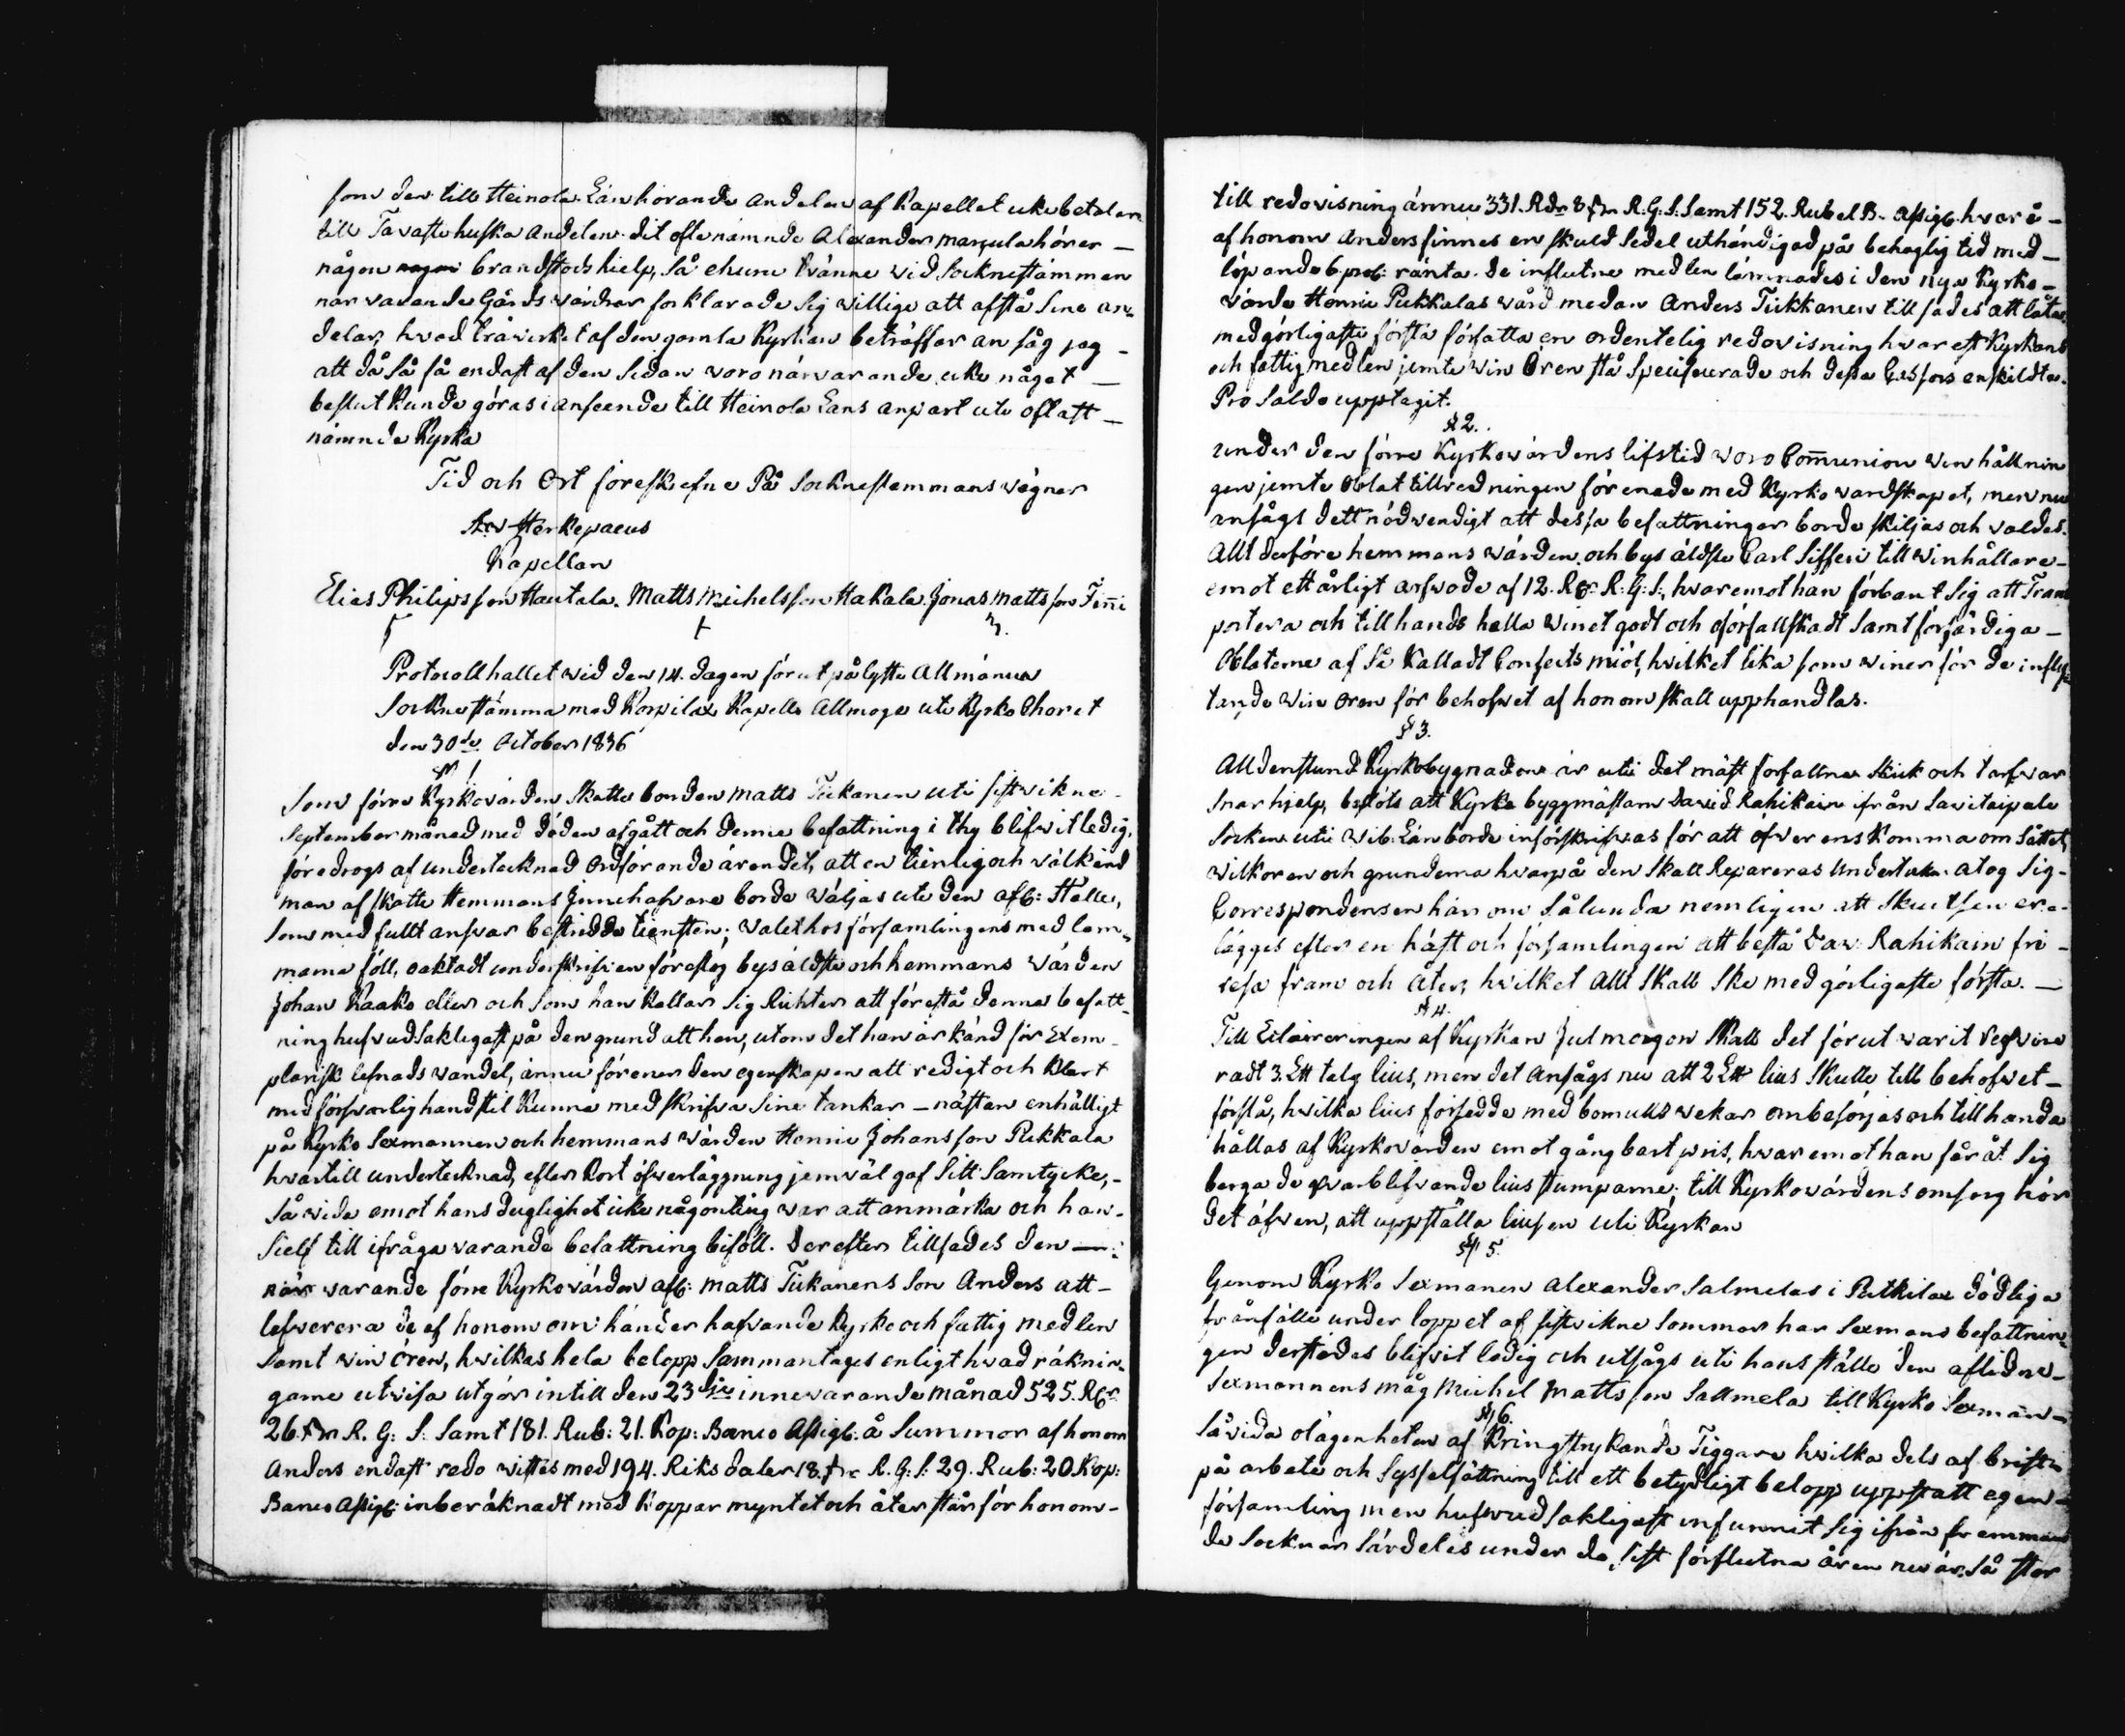 som den till Heinola Län hörande andelen af Kapellet icke betalar
till Tavastehuska andelen dit oftenämnde Alexander Manjula hörer —
någon brandstodshielp, så ehuru tvänne vid Sockneståmman
när varande Gårdsvärdrar förklarade sig willige att afstå sine an-
delar, hvad tråwirket af den gamla Kyrkan betråffar ansåg jag —
att då så få endast af den sidan voro nårvarande icke något —
beslut kunde göras i anseende till Heinola Läns anpart uti oftast —
nåmnde Kyrka
Tid och Ort föreskrefne På Socknestemmans vägnar
And Herkepaeus
Kapellan
Elias Philipsson Hautala. Matts Michelsson Hakala. Jonas Mattsson Finni
Protocoll hallet wid den 14. dagen förut pålyste Allmänna
Socknestämma med Korpilax Kapells Allmoge uti Kyrko Choret
den 30de October 1836
§ 1
Som förre Kyrkovärden Skatte bonden Matts Tickanen uti sistvikne
September månad med döden afgått och denne befattning i thy blifvit ledig,
föredrogs af undertecknad Ordförande ärendet, att en tienlig och välkänd
man af Skatte Hemmans Innehafvare borde väljas uti den afl: Ställe,
som med fullt ansvar bestridde tiensten; valet hos församlingens medlem-
marna föll, oaktadt underskrifven föreslog bysåldste och hemmans vården
Johan Raako eller och som han kallar sig Richter att förestå denna befatt-
ning hufvudsakligast på den grund att han, utom det han är känd för Exem-
plarisk lefnads vandel, ännu förenar den egenskapen att redigt och klart
med försvarlig handstil kunna med skrifva sine tankar — nästan enhälligt
på Kyrko Sexmannen och hemmans Vården Honni Johansson Pukkala
hvartill undertecknad, efter kort öfverläggning jemväl gaf sitt samtycke, —
så vida emot hans duglighet icke någonting var att anmårka och han —
sielf till ifråga varande befattning biföll. Derefter tillsades den —
när varande förre Kyrkovården afl: Matts Tickanens son Anders att —
lefverera de af honom om händer hafvande Kyrko och fattig medlen
samt vin ören, hvilkas hela belopp sammantages enligt hvad råknin-
garne utvisa utgör intill den 23dje innevarande månad 525. Rdr
26 sk R. G: S: Samt 181. Rub: 21. Kop: Banco Assigt: å summor af honom
Anders endast redo vistes med 194. Riksdaler 18. sk R. G: S: 29. Rub: 20 Kop:
Banco Assigt: inberäknadt med Koppar myntet och återstår för honom —
till redovisning ännu 331. Rdr 8 sk R. G. S. Samt 152. Rubel B. Assigt. hvarå —
af honom Anders finnes en skuld sedel uthändigad på behaglig tid med —
löpande 6 proc: ränta. De influtne medlen lämnades i den nya Kyrko —
vården Honni Pukkalas vård medan Anders Tickkanen till sades att låta
med görligaste första författa en ordentelig redovisning hvarest Kyrkans
och fattig medlen jemte Vin Ören stå Specificerade och dessa Cassors enskildta
Pro Saldo upptagit.
§ 2.
Under den förre Kyrkovårdens lifstid voro Communion Vin hållnin
gen jemte Oblat tillredningen förenade med Kyrko vardskapet, men nu
ansågs dett nödvendigt att dessa befattningar borde skiljas och valdes
Allt derföre hemmans vården och bys äldste Carl Sifferi till Winhållare —
emot ett årligt arfvode af 12. Rdr R: G: S:, hvaremot han förbant sig att Trans
portera och till hands halla vinet godt och oförfallskadt samt förfärdiga —
Oblaterne af Så Kalladt Confects miöl, hvilket lika som vinet för de influ-
tande Vin ören för behofvet af honom skall upphandlas.
§ 3.
Alldenstund Kyrkobygnaden är uti det mäst förfallne Skick och tarfvar
snar hjelp, beslöts att Kyrko byggmästarn David Rahikain ifrån Savitaipale
Socken uti Wib: Län borde införskrifvas för att öfverenskomma om sättet,
vilkoren och grunderna hvarpå den skall Repareras Undertekn: atog sig —
Correspondensen här om sålunda nemligen att skiutsen er-
lägges efter en häst och församlingen att bestå Dav: Rahikain fri —
resa fram och Åter, hvilket Allt skall ske med görligaste första. —
§ 4.
Till Eclaireringen af Kyrkan Julmorgon skall det förut varit
radt 3. Ltt talg lius, men det ansågs nu att 2 Ltt lius skulle till behofvet —
förslå, hvilka lius försedde med bomulls vekar ombesörjas och till handa
hållas af Kyrkovården emot gångbart pris, hvaremot han får åt sig
berga de qvarblifvande lius stumparne; till Kyrkovårdens omsorg hör
det äfven, att uppställa liusen uti Kyrkan
§ 5.
Genom Kyrko Sexmanen Alexander Salmelas i Putkilax dödliga
frånfälle under loppet af sistvikne Sommar har Sexmans befattnin-
gen derstädes blifvit ledig och utsågs uti hans ställe den aflidne —
Sexmannens måg Michel Mattsson Sallmela till Kyrko Sexman —
§ 6.
Såvida olägenheten af kringstrykande Tiggare hvilka dels af brist
på arbete och Sysselsättning till ett betydligt belopp uppstått egen —
församling men hufvudsakligast infunnit sig ifrån främman
de Socknar särdeles under de sist förflutna åren nu är så stor